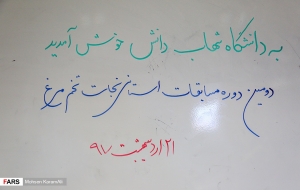 به دانشگاه شهاب دانش خوش آمدید
دومین دوره مسابقات استانی نجات تخم مرغ
۲۱ اردیبهشت ۹۸
FARS
Mohsen Ranenifki